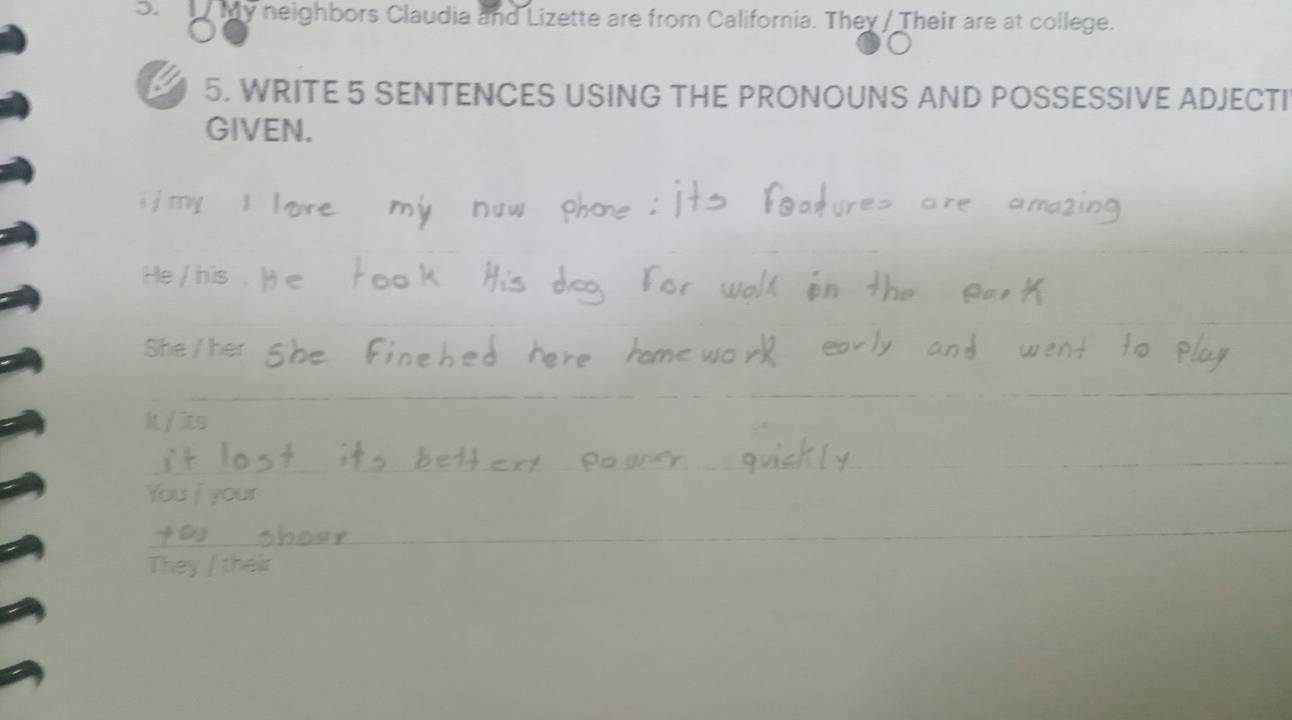 5. I / My neighbors Claudia and Lizette are from California. They / Their are at college.
5. WRITE 5 SENTENCES USING THE PRONOUNS AND POSSESSIVE ADJECTI
GIVEN.
i / my I love my nuw phone : its foodures are amazing
He / his He took His dog for walk in the park
She / her She Finehed here homework early and went to play
It / its
it lost its bettery power quickly
You / your
You shour
They / their